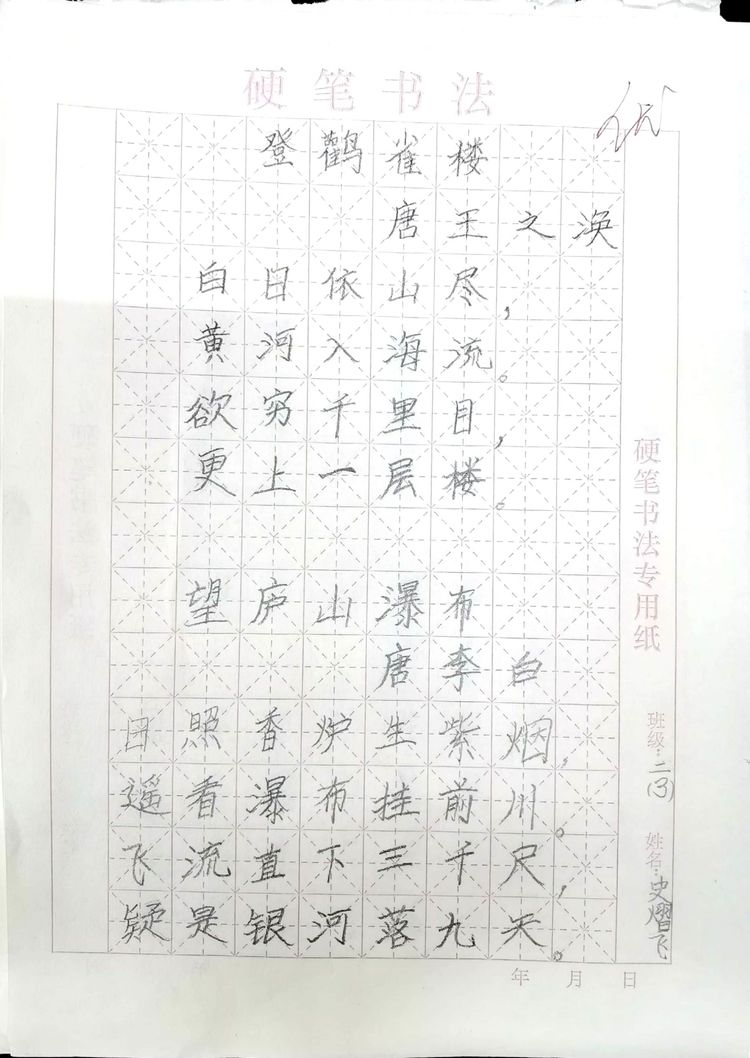 硬笔书法
优
登鹳雀楼
唐 王之涣
白日依山尽，
黄河入海流。
欲穷千里目，
更上一层楼。
望庐山瀑布
唐 李白
日照香炉生紫烟，
遥看瀑布挂前川。
飞流直下三千尺，
疑是银河落九天。
硬笔书法专用纸
班级：二(3)
姓名：史熠飞
年 月 日